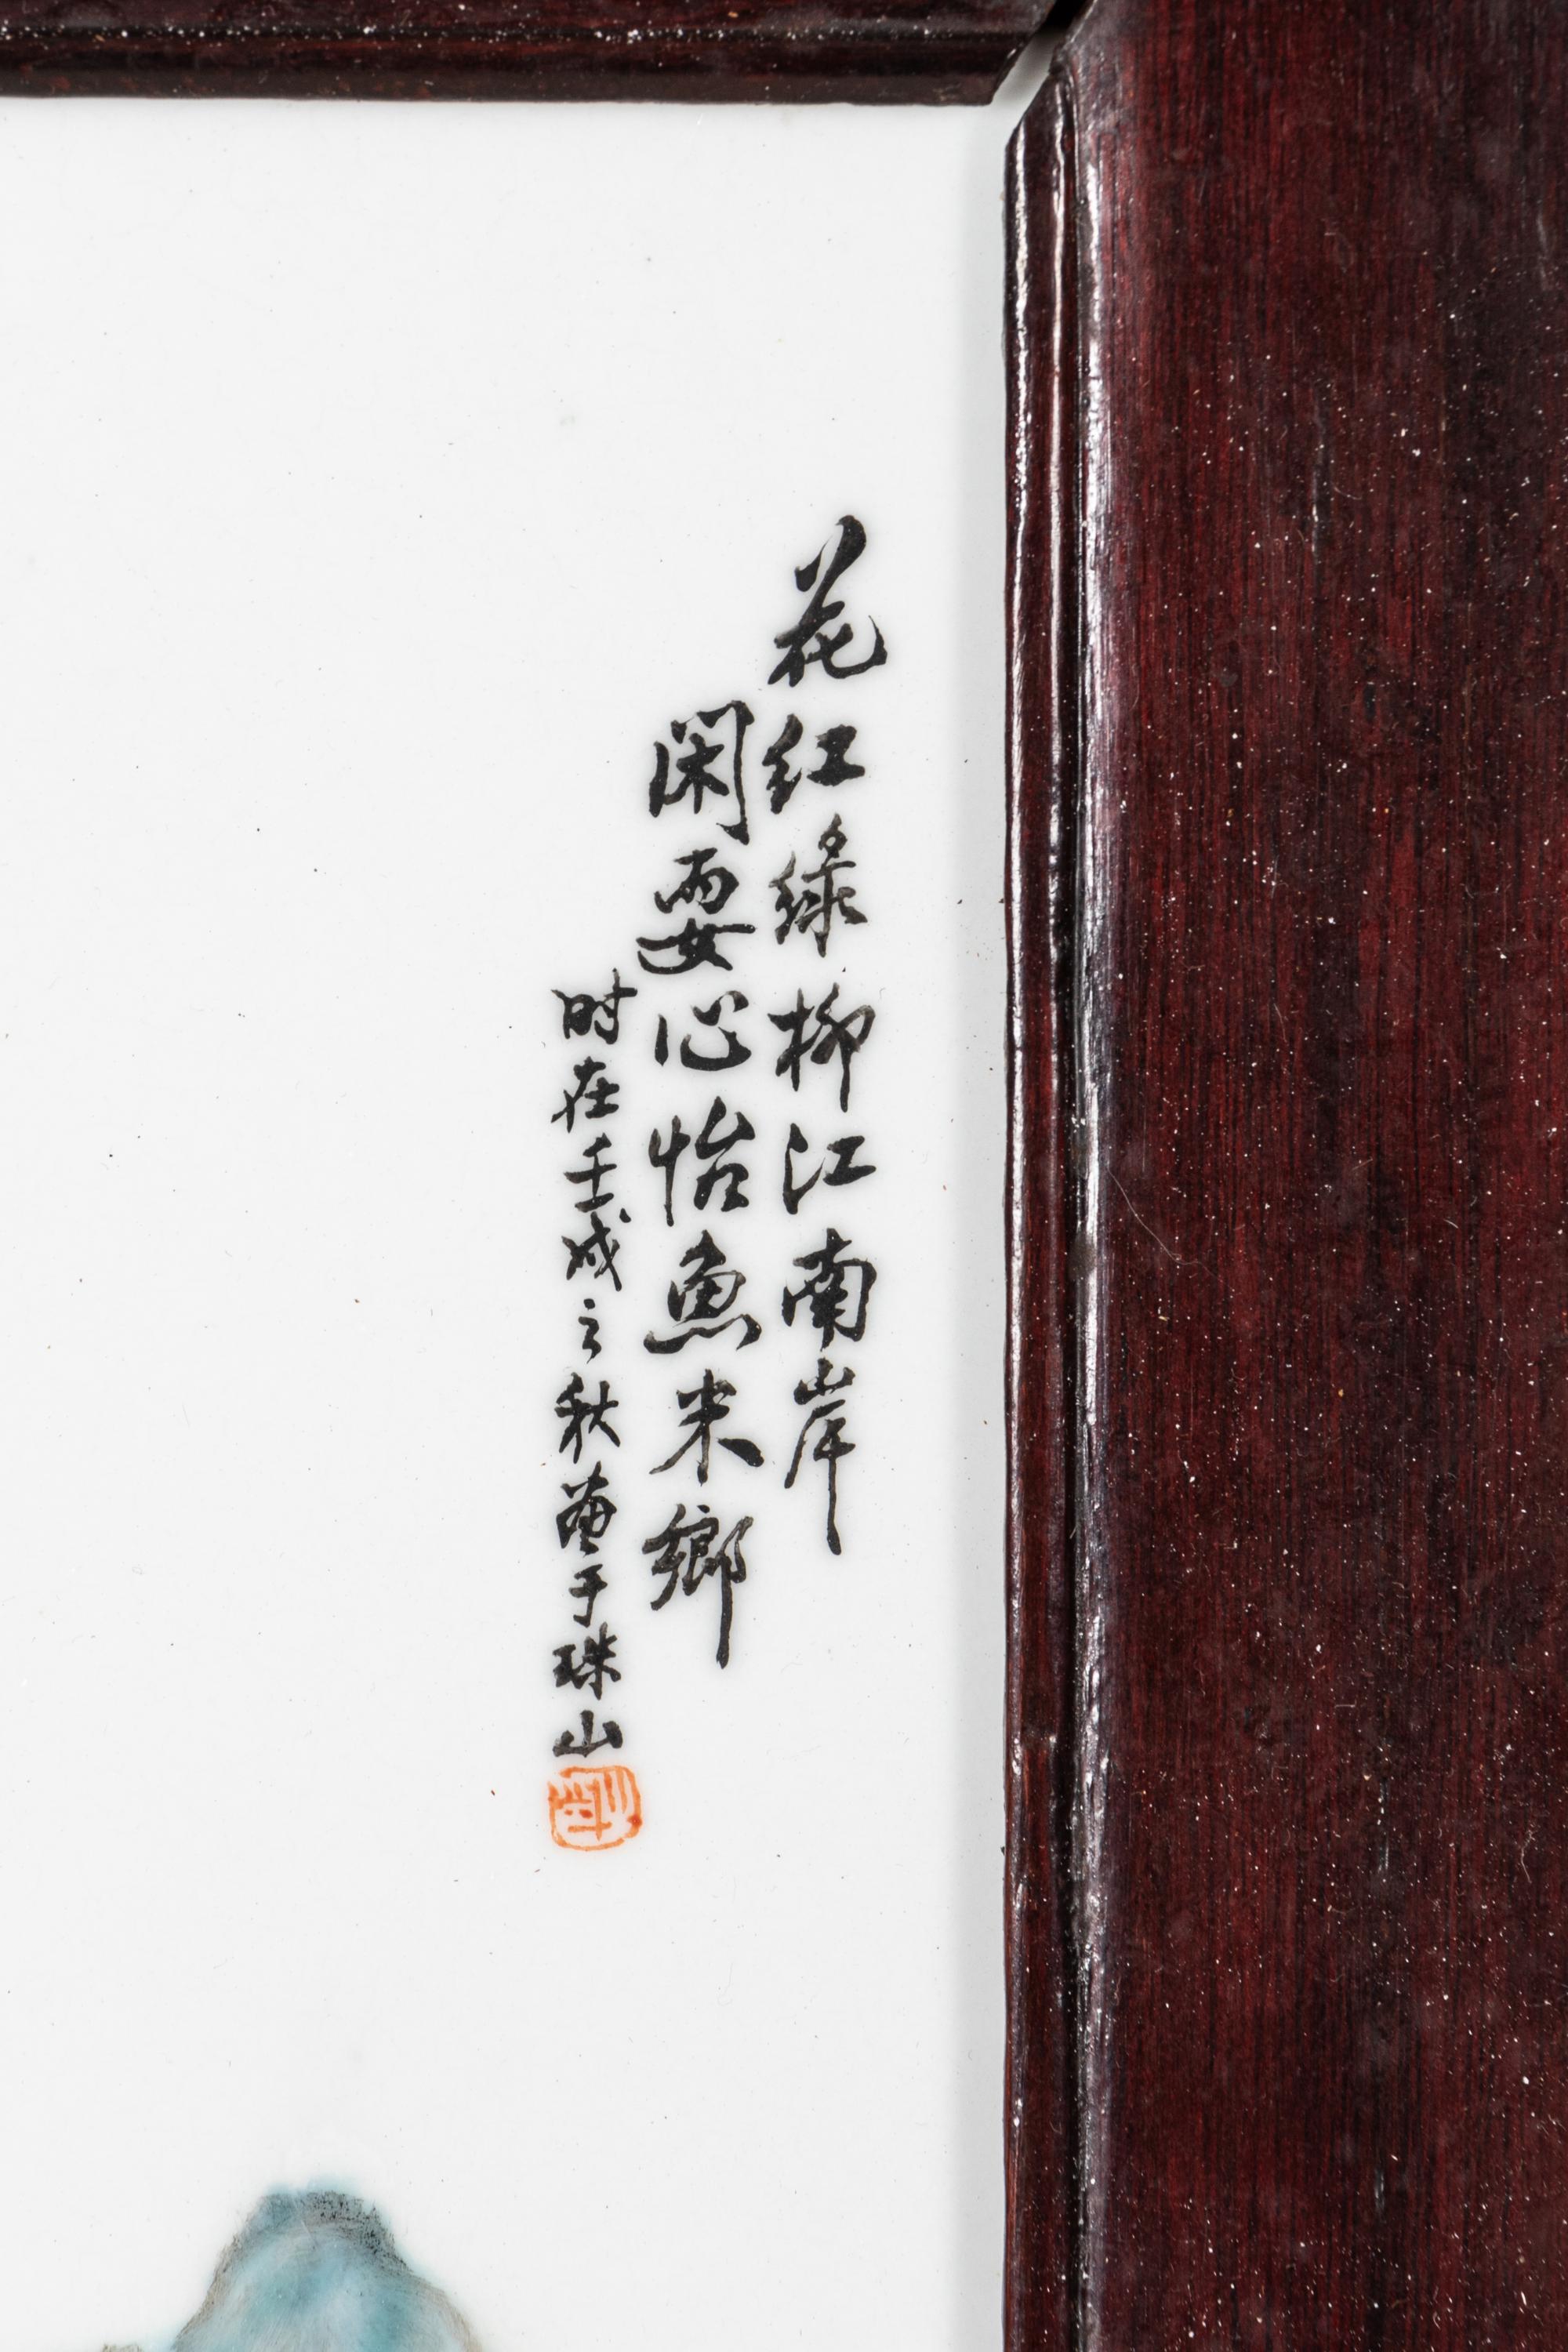 花红绿柳江南岸
闲耍心怡鱼米鄉
时在壬戌之秋画于珠山